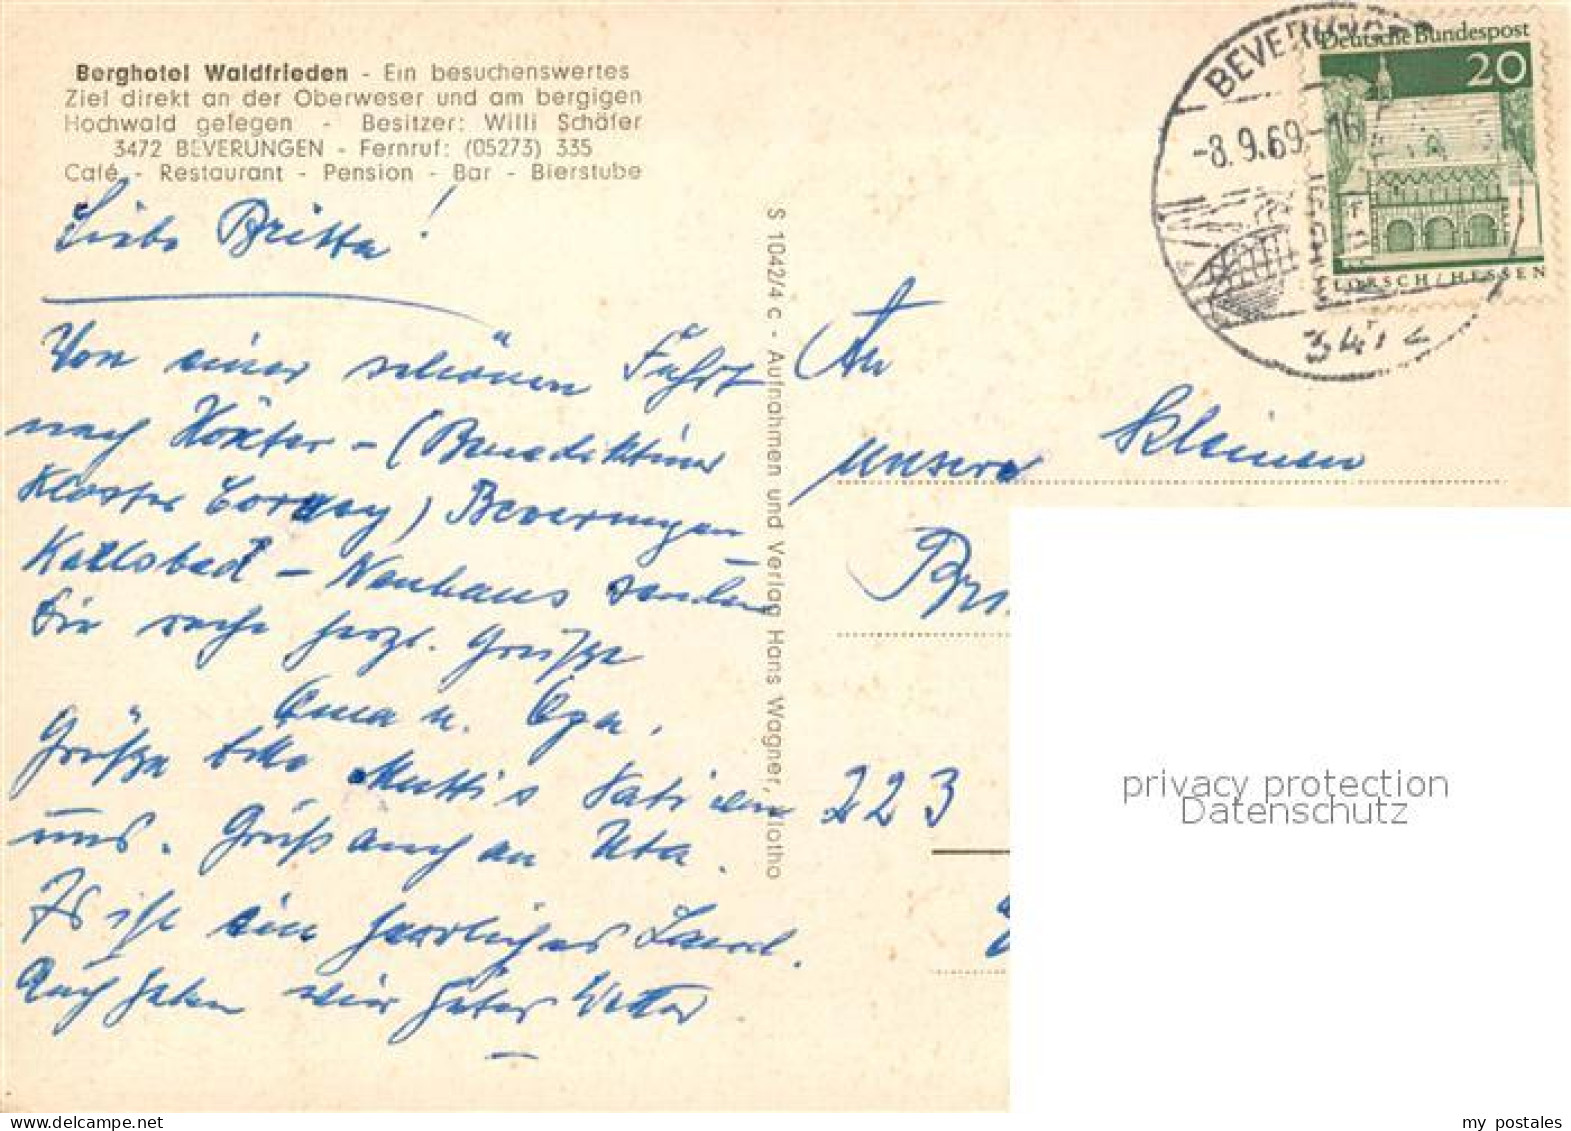 Berghotel Waldfrieden - Ein besuchenswertes
Ziel direkt an der Oberweser und am bergigen
Hochwald gelegen - Besitzer: Willi Schäfer
3472 BEVERUNGEN - Fernruf: (05273) 335
Café - Restaurant - Pension - Bar - Bierstube
Liebe Britta!
Von einer schönen Fahrt
nach Höxter - (Benediktiner
Kloster Corvey) Beverungen
Karlsbad - Neuhaus senden
Dir recht herzl. Grüße
Oma u. Opa.
Grüße bitte Mutti u. Vati von
uns. Grüß auch an Uta.
Es ist ein herrliches Land.
Auch haben wir gutes Wetter
S 1042/4 c - Aufnahmen und Verlag Hans Wagner, Vlotho
BEVERUNGEN
-8.9.69-16
Deutsche Bundespost
20
LORSCH/HESSEN
An
unsere kleinen
223
privacy protection
Datenschutz
my postales